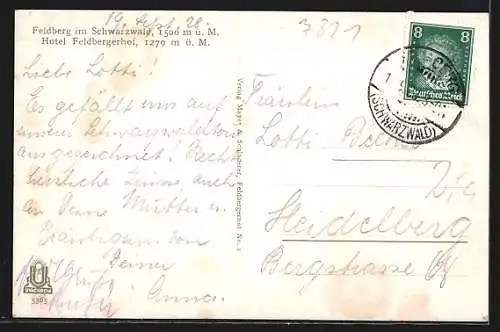 19. Sept. 28.
7321
Feldberg im Schwarzwald, 1500 m ü. M.
Hotel Feldbergerhof, 1279 m ü. M.
Liebe Lotti!
Es gefällt uns auf
unserer Schwarzwaldtour
ausgezeichnet! Recht
herzliche Grüsse, auch
an Deine Mutter u.
Bräutigam von
Deiner
Anna.
Verlag Mayer &
Feldbergerhof Nr. 1
8 8
Deutsches Reich
(SCHWARZWALD)
Fräulein
Lotti
Heidelberg
Bergstrasse
U
5305